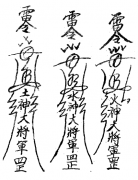 雷令
火神大將軍罡
雷令
水神大將軍罡
雷令
土神大將軍罡